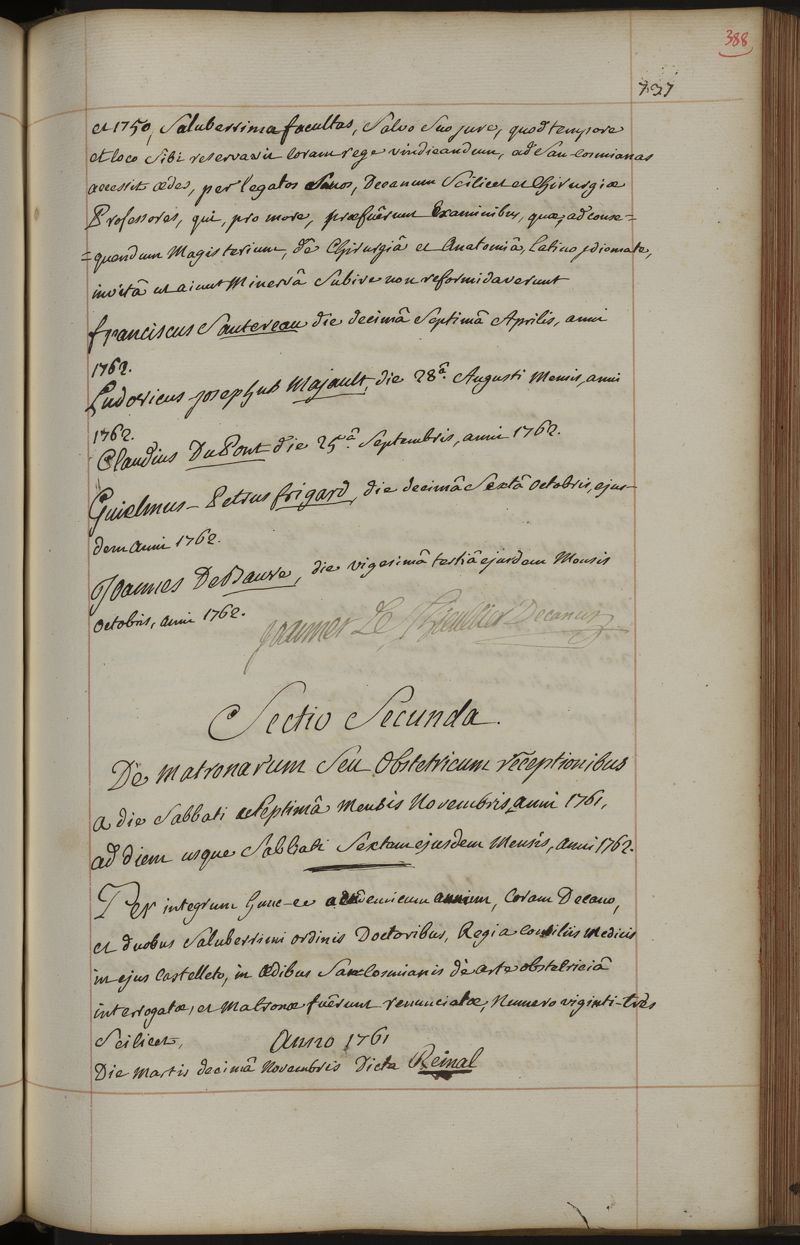 388
737
et 1750, Saluberrima facultas, Salvo Suo jure, quod tempore
et loco Sibi reservavit Coram rege vindicandum, ad San-Cosmianas
accessit ædes, per legatos Suos, Decanum Scilicet et Chirurgiæ
Professores, qui, pro more, præfuêrunt Examinibus, quæ, ad conse=
=quendum Magisterium, de Chirurgiâ et Anatomiâ, latino jdiomate,
invitâ ut aiunt Minervâ Subire non reformidaverunt
franciscus Sautereau die decimâ Septimâ Aprilis, anni
1762.
Ludovicus josephus Majault, die 28â. Augusti Mensis, anni
1762.
Claudius DuPont die 25â. Septembris, anni 1762.
Guielmus-Petrus frigard, die decimâ Sextâ Octobris, ejus-
dem anni 1762.
Joannes Debauve, die vigesimâ tertiâ ejusdem Mensis
Octobris, anni 1762.
Joannes Le Thieullier Decanus
Sectio Secunda.
De Matronarum Seu Obstetricum réceptionibus
a die Sabbati Septimâ Mensis Novembris anni 1761,
ad diem usque Sabbati Sextam ejusdem Mensis, anni 1762.
Per integrum hunc-ce academicum annum, Coram Decano,
et duobus Saluberrimi ordinis Doctoribus, Regi a Consiliis Medicis
in ejus Castelleto, in Ædibus SanCosmianis de arte obstetriciâ
interrogatæ, et Matronæ fuêrunt renunciatæ, Numero viginti-três
Scilicet,
Anno 1761
Die Martis decimâ Novembris Dicta Reinal